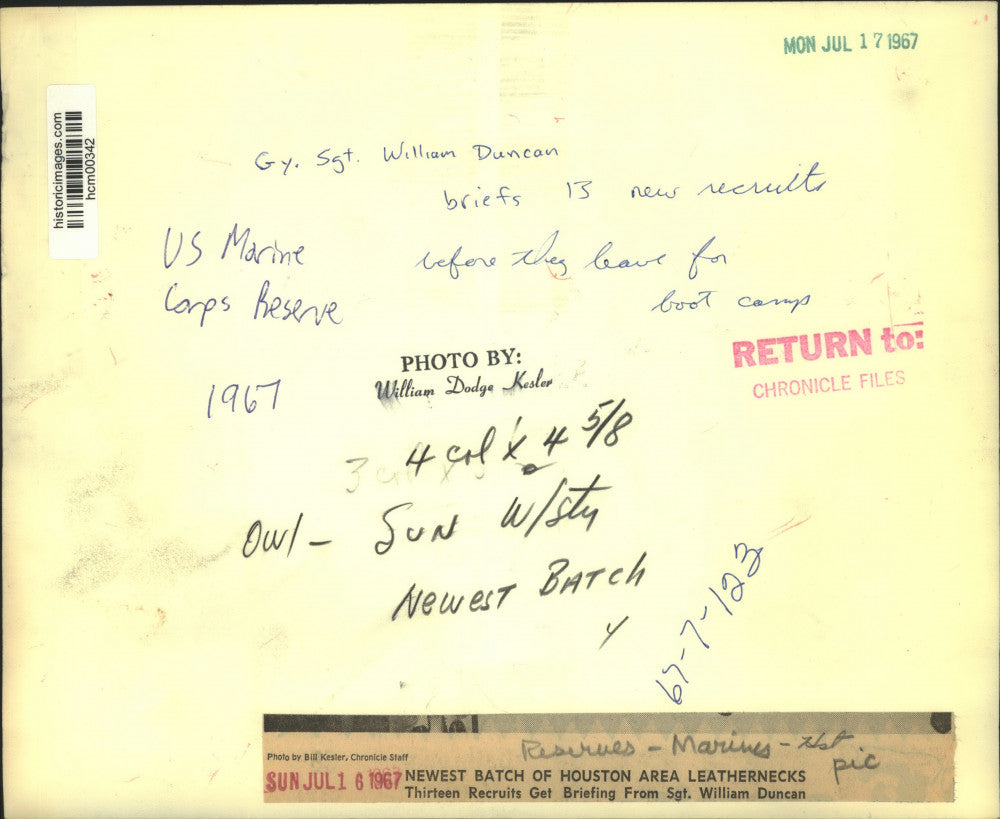 MON JUL 17 1967
historicimages.com
hcm00342
Gy. Sgt. William Duncan
briefs 13 new recruits
before they leave for
boot camp
US Marine
Corps Reserve
1967
PHOTO BY:
William Dodge Kesler
RETURN to:
CHRONICLE FILES
4 col x 4 5/8
3 col x
Owl - SUN W/Sty
NEWEST BATCH
67-7-123
Reserves - Marines - Hst
pic
Photo by Bill Kesler, Chronicle Staff
SUN JUL 16 1967
NEWEST BATCH OF HOUSTON AREA LEATHERNECKS
Thirteen Recruits Get Briefing From Sgt. William Duncan